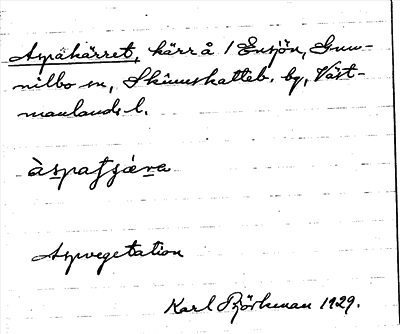 Aspäkärret, kärr å 1 Ensjön, Gun-
nilbo sn, Skinnskatteb. bg, Väst-
manlands l.
àspatjæ̀ra
Aspvegetation
Karl Björkman 1929.